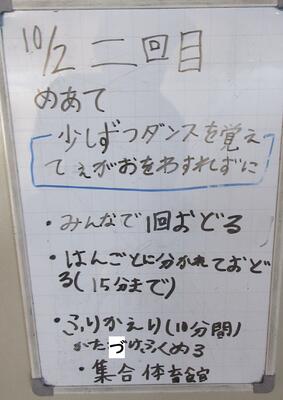 10/2 二回目
めあて
少しずつダンスを覚え
てえがおをわすれしずに
・みんなで1回おどる
・はんごとに分かれておど
る(15分まで)
・ふりかえり(10分間)
かたづけふくめる
・集合体育館